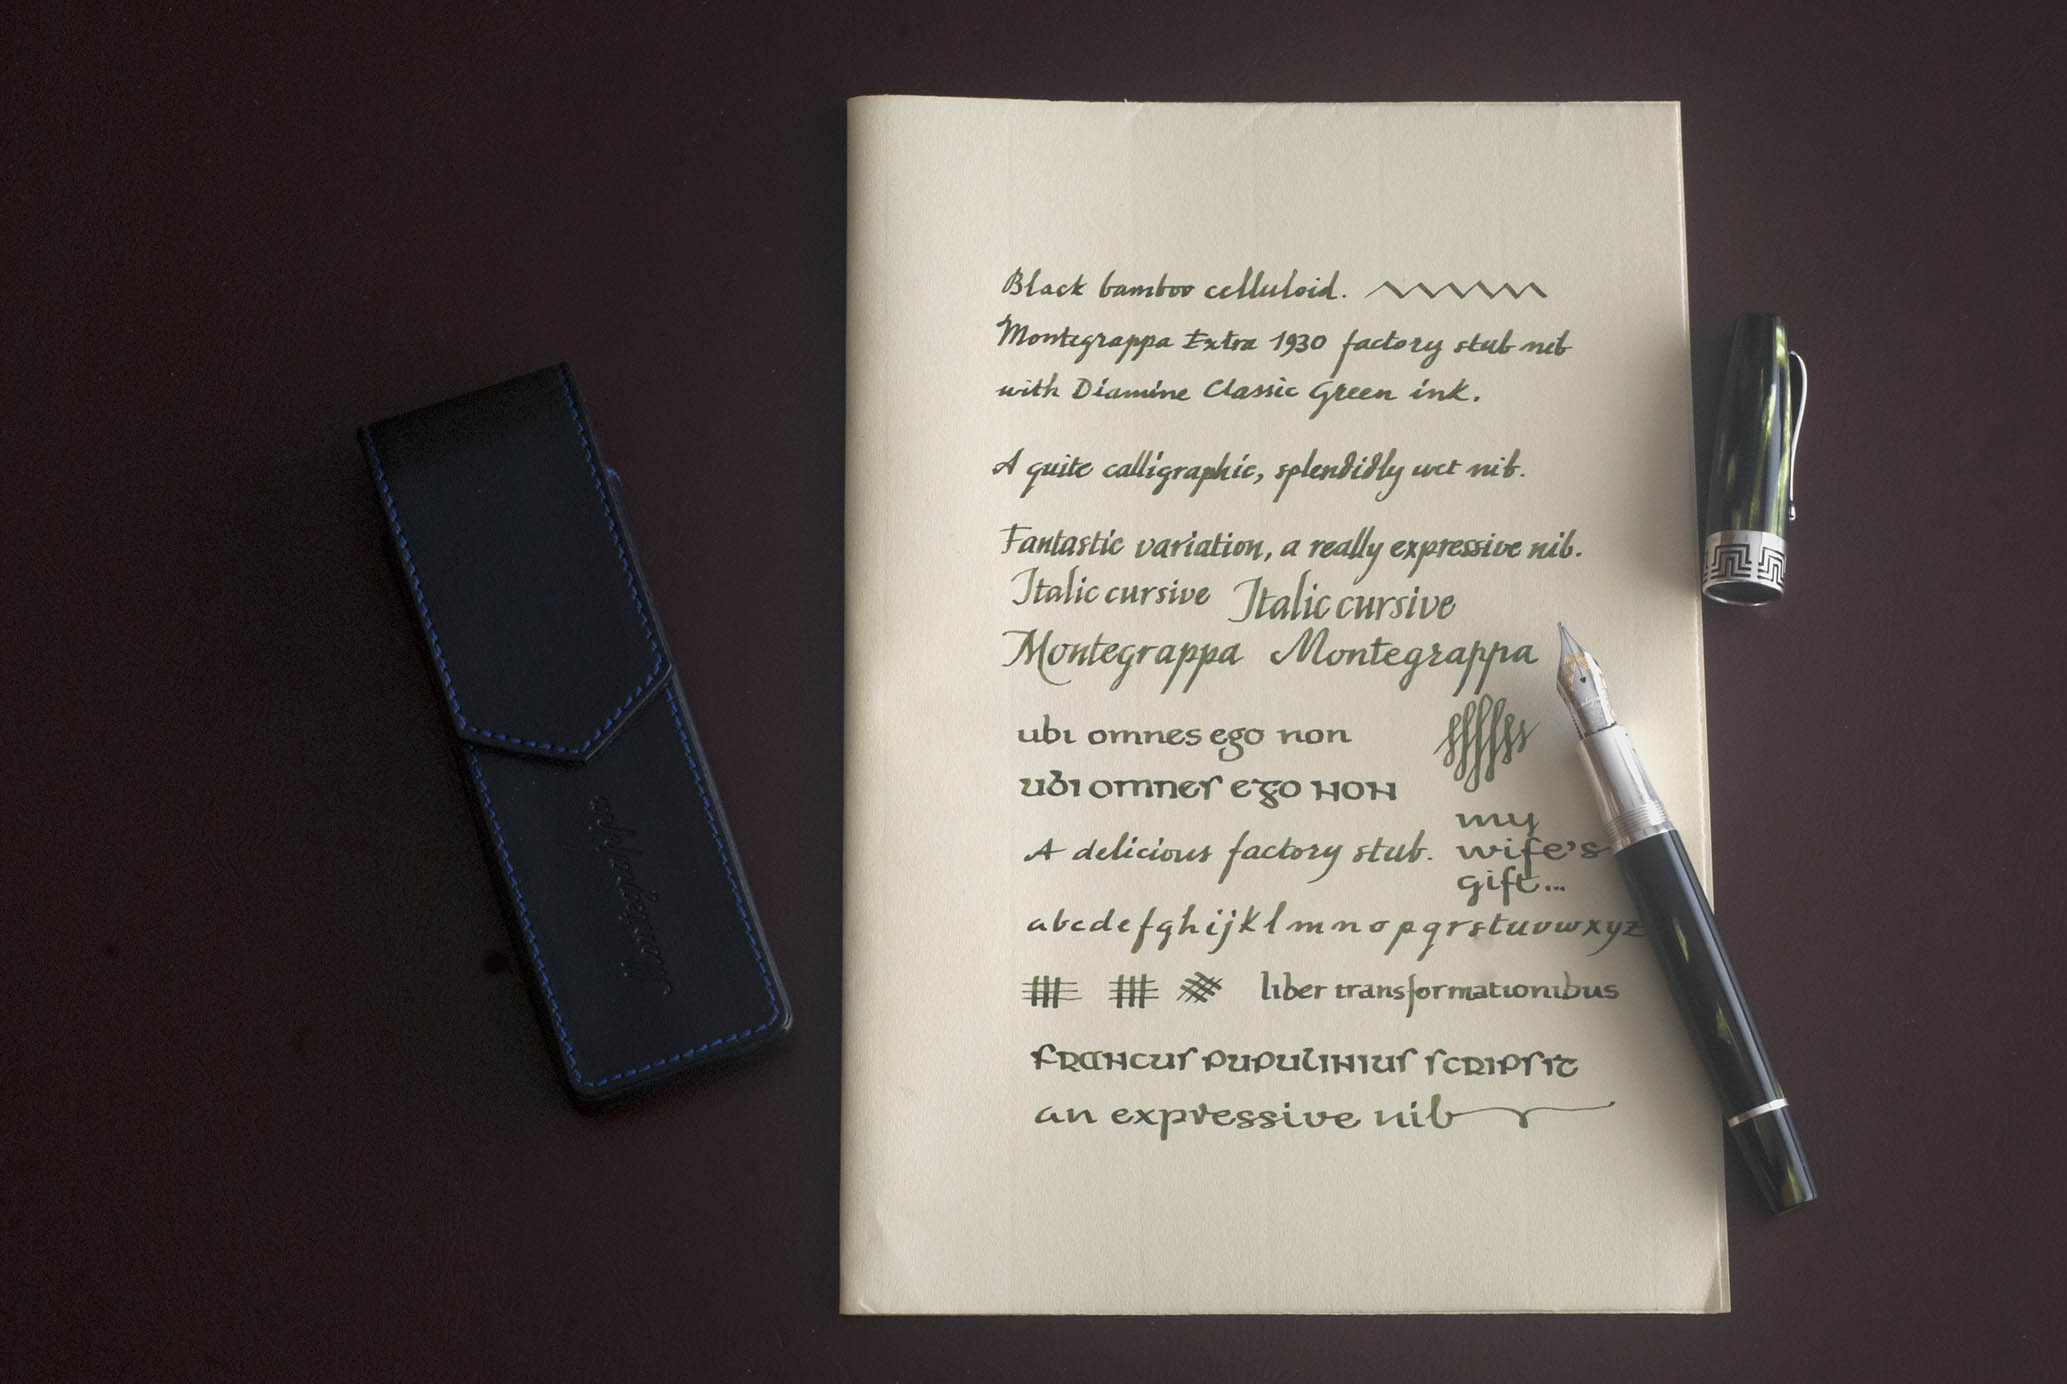 Black bamboo celluloid.
Montegrappa Extra 1930 factory stub nib
with Diamine Classic Green ink.
A quite calligraphic, splendidly wet nib.
Fantastic variation, a really expressive nib.
Italic cursive Italic cursive
Montegrappa Montegrappa
ubi omnes ego non
ubi omnes ego non
A delicious factory stub.
my
wife's
gift...
abcdefghijklmnopqrstuvwxyz
liber transformationibus
francus pupulinius scripsit
an expressive nib